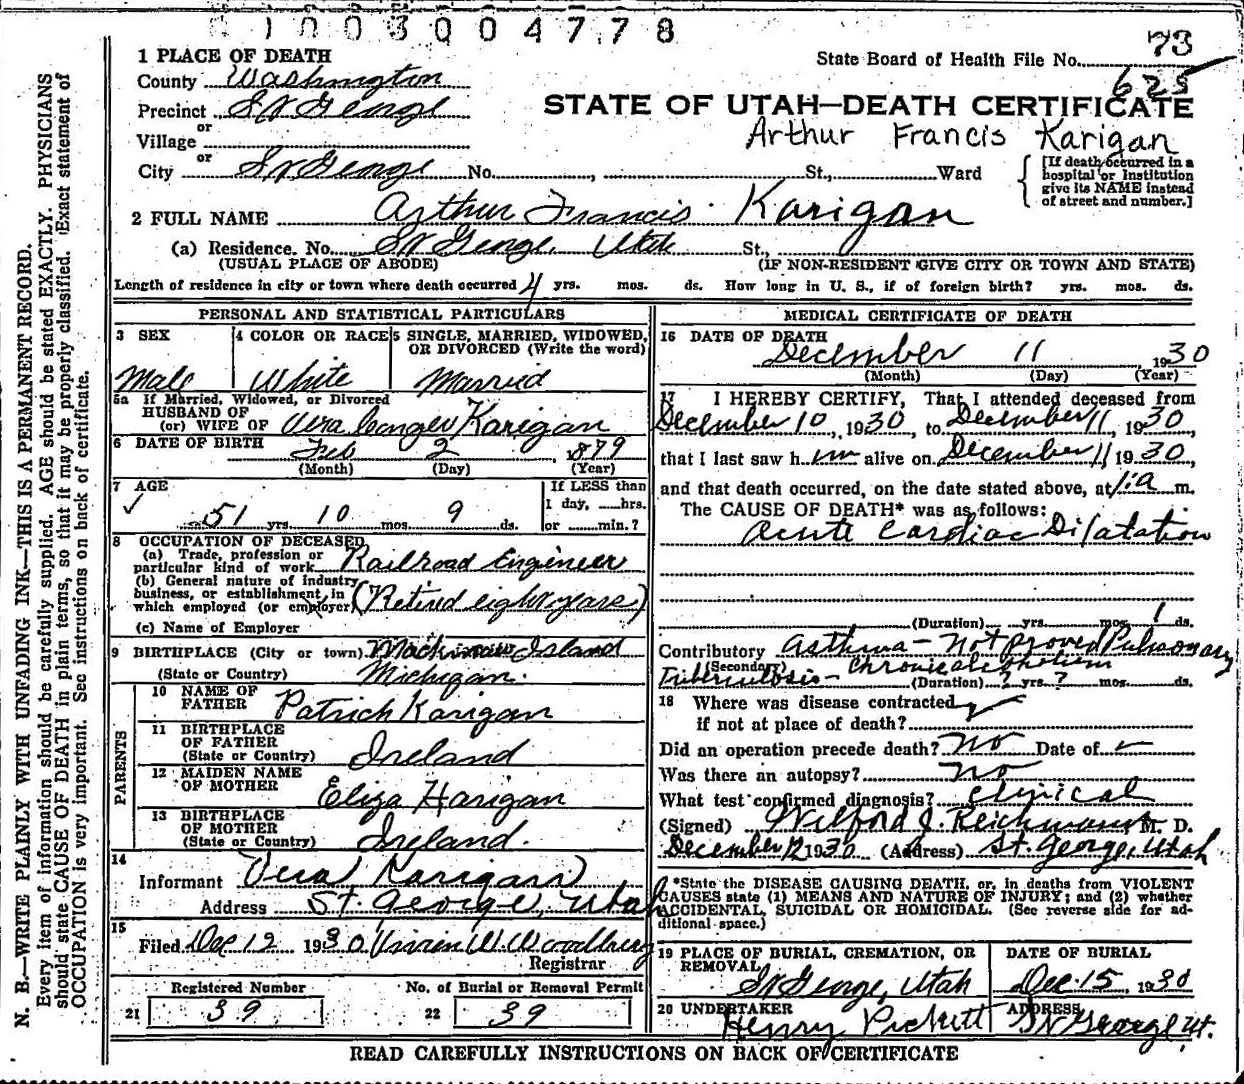 1003004778
73
State Board of Health File No.
625
STATE OF UTAH—DEATH CERTIFICATE
Arthur Francis Karigan
1 PLACE OF DEATH
County Washington
Precinct St George
or
Village
or
City St George No. , St., Ward
[If death occurred in a hospital or institution give its NAME instead of street and number.]
2 FULL NAME Arthur Francis Karigan
(a) Residence. No. St George, Utah St.,
(USUAL PLACE OF ABODE) (IF NON-RESIDENT GIVE CITY OR TOWN AND STATE)
Length of residence in city or town where death occurred 4 yrs. mos. ds. How long in U. S., if of foreign birth? yrs. mos. ds.
PERSONAL AND STATISTICAL PARTICULARS
3 SEX
Male
4 COLOR OR RACE
White
5 SINGLE, MARRIED, WIDOWED, OR DIVORCED (Write the word)
Married
5a If Married, Widowed, or Divorced
HUSBAND OF
(or) WIFE OF Vera Conger Karigan
6 DATE OF BIRTH Feb 2, 1879
(Month) (Day) (Year)
7 AGE
51 yrs. 10 mos. 9 ds.
If LESS than
1 day, hrs.
or min.?
8 OCCUPATION OF DECEASED
(a) Trade, profession or
particular kind of work Railroad Engineer
(b) General nature of industry
business, or establishment in
which employed (or employer) (Retired eight years)
(c) Name of Employer
9 BIRTHPLACE (City or town) Mackinaw Island
(State or Country) Michigan.
PARENTS
10 NAME OF FATHER Patrick Karigan
11 BIRTHPLACE OF FATHER
(State or Country) Ireland
12 MAIDEN NAME OF MOTHER Eliza Harigan
13 BIRTHPLACE OF MOTHER
(State or Country) Ireland.
14
Informant Vera Karigan
Address St. George, Utah
15
Filed Dec 12 1930 Vivian W. Woodbury
Registrar
Registered Number
21 39
No. of Burial or Removal Permit
22 39
MEDICAL CERTIFICATE OF DEATH
16 DATE OF DEATH
December 11 1930
(Month) (Day) (Year)
17 I HEREBY CERTIFY, That I attended deceased from
December 10, 1930, to December 11, 1930
that I last saw him alive on December 11 1930,
and that death occurred, on the date stated above, at 1:a m.
The CAUSE OF DEATH* was as follows:
Acute Cardiac Dilatation
(Duration) yrs. mos. 1 ds.
Contributory Asthma - Not proved Pulmonary
(Secondary)
Tuberculosis - Chronic alcoholism
(Duration) ? yrs. ? mos. ds.
18 Where was disease contracted
if not at place of death?
Did an operation precede death? No Date of
Was there an autopsy? No
What test confirmed diagnosis? Clinical
(Signed) Wilford J. Reichmann, M. D.
December 12 1930 (Address) St. George, Utah
*State the DISEASE CAUSING DEATH, or, in deaths from VIOLENT
CAUSES state (1) MEANS AND NATURE OF INJURY; and (2) whether
ACCIDENTAL, SUICIDAL OR HOMICIDAL. (See reverse side for additional space.)
19 PLACE OF BURIAL, CREMATION, OR REMOVAL
St George, Utah
DATE OF BURIAL
Dec. 15, 1930
20 UNDERTAKER
Henry Pickett
ADDRESS
St George, Ut.
READ CAREFULLY INSTRUCTIONS ON BACK OF CERTIFICATE
N. B.—WRITE PLAINLY WITH UNFADING INK—THIS IS A PERMANENT RECORD.
Every item of information should be carefully supplied. AGE should be stated EXACTLY. PHYSICIANS
should state CAUSE OF DEATH in plain terms, so that it may be properly classified. Exact statement of
OCCUPATION is very important. See instructions on back of certificate.